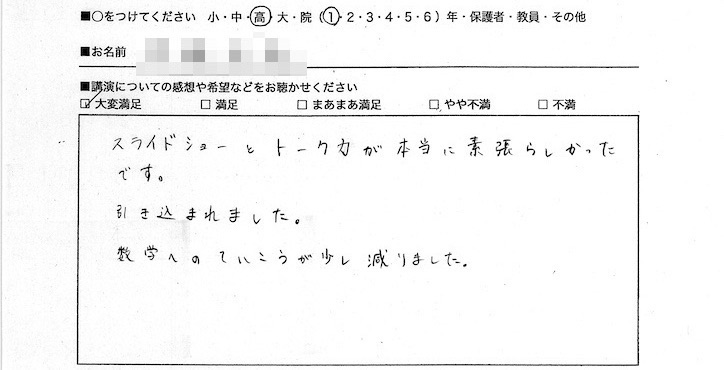 ■○をつけてください 小・中・高・大・院（1・2・3・4・5・6）年・保護者・教員・その他
■お名前
■講演についての感想や希望などをお聴かせください
☑大変満足 □満足 □まあまあ満足 □やや不満 □不満
スライドショーとトーク力が本当に素張らしかった
です。
引き込まれました。
数学へのていこうが少し減りました。